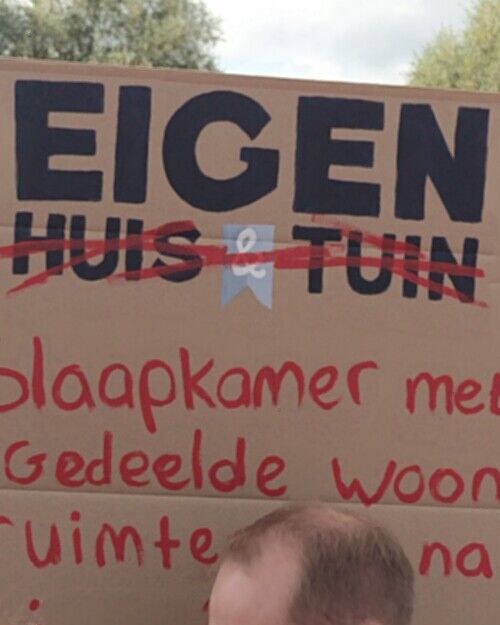 EIGEN
HUIS & TUIN
slaapkamer met
Gedeelde woon
ruimte na